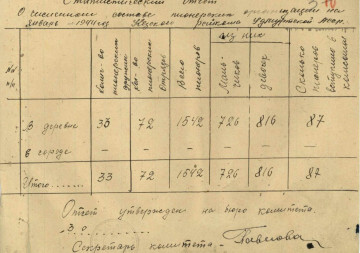 Статистический отчет
О численном составе пионерской организации на
январь - 1944 год района Удмуртской АССР.
из них
№№ п/п
колич-во пионерских дружин
кол-во пионерских отрядов
Всего пионеров
Мальчиков
девочек
Сколько пионеров вступило в комсомол
В деревне 33 72 1542 726 816 87
в городе — — — — — —
Итого....... 33 72 1542 726 816 87
Отчет утвержден на бюро комитета.
Секретарь комитета - Павлова